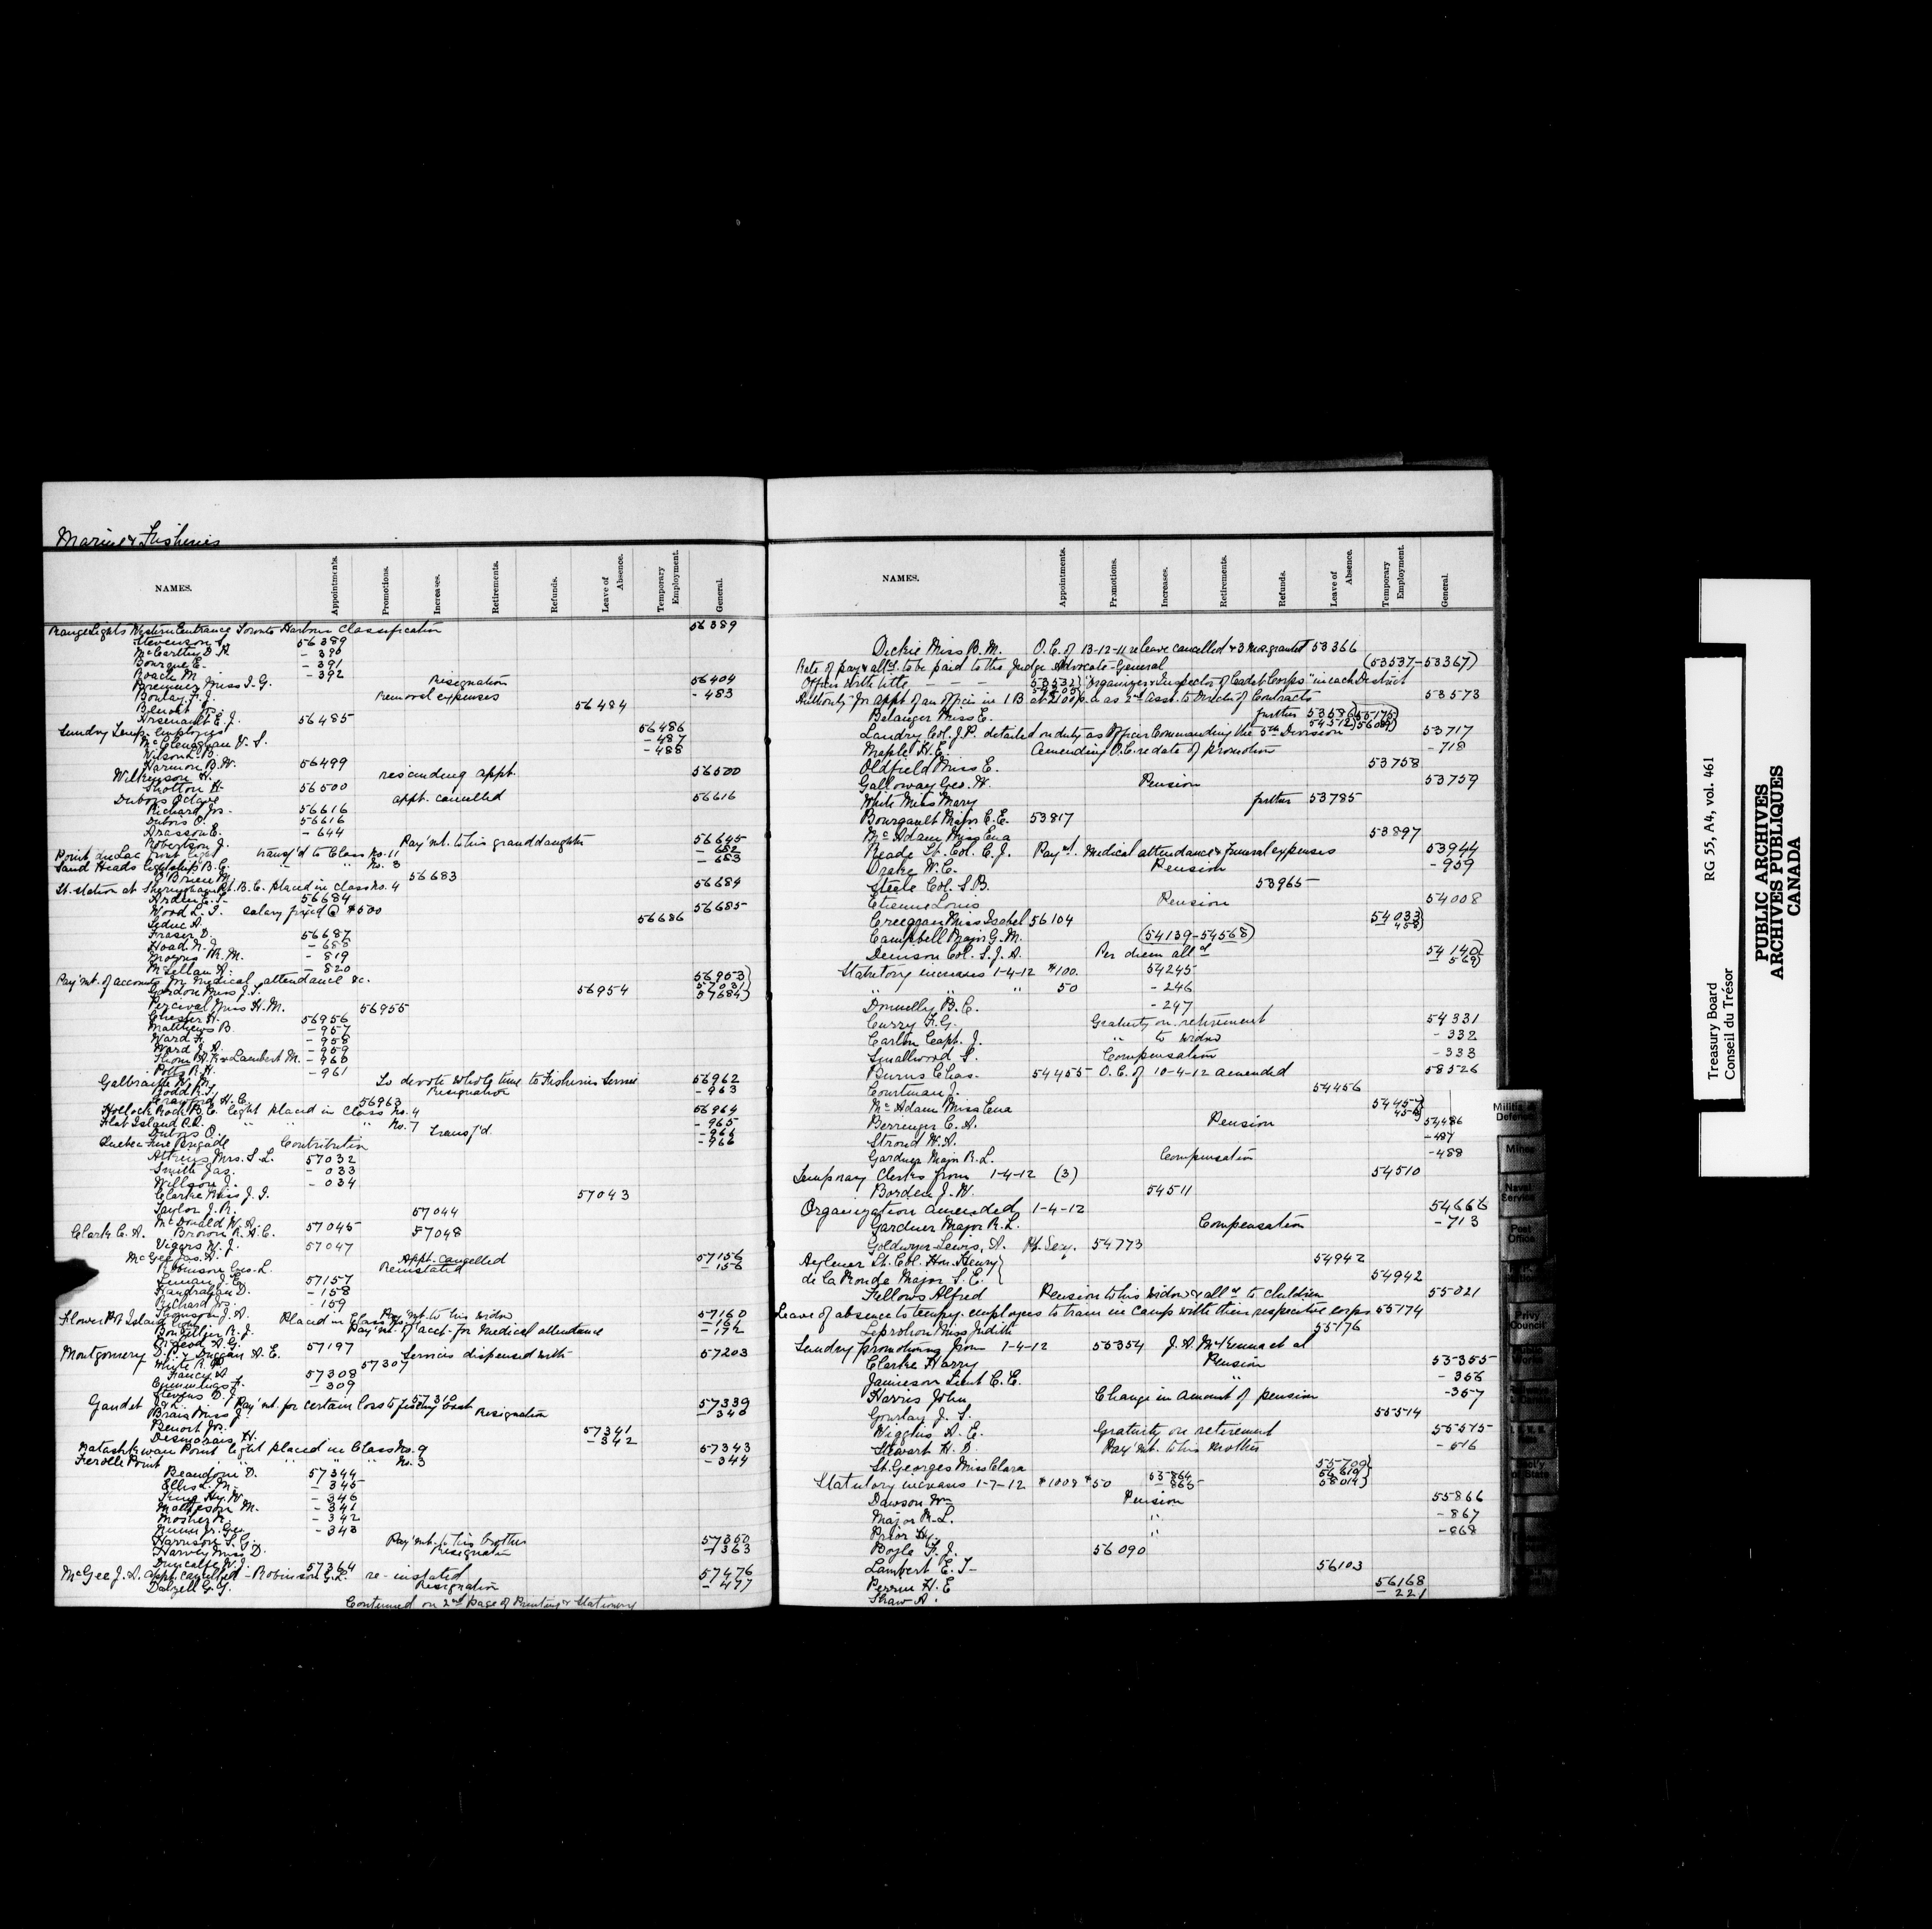 Marine & Fisheries
NAMES. Appointments. Promotions. Increases. Retirements. Refunds. Leave of Absence. Temporary Employment. General.
Range Lights Western Entrance Toronto Harbour Classification 56389
Stevenson A. 56389
McCarthy D. A. - 390
Bourque E. - 391
Roach M. - 392
Bremner Miss I. G. Resignation 56404
Boulay F. J. Removal expenses - 483
Benoit Jos. 56484
Arsenault E. J. 56485
Sundry Temp. employees 56486
McClenaghan V. S. - 487
Wilson R. - 488
Harmon B. W. 56499
Wilkinson H. rescinding appt. 56500
Shotton H. 56500
Dubois J. Clare appt. cancelled 56616
Richard Jos. 56616
Dubois O. 56616
Arasson E. - 644
Robertson J. Pay'mt. to his granddaughter 56645
Point du Lac front light transf'd to Class No. 11 - 682
Sand Heads Lightship B.C. " " No. 3 - 683
O'Brien M. 56683
Lt. station at Sheringham Pt. B.C. placed in Class No. 4 56684
Arden E. T. 56684
Wood L. I. Salary fixed @ $500 56685
Leduc A. 56686
Fraser D. 56687
Hoad N. J. - 688
Morris W. M. - 819
McLellan A. - 820
Pay'mt. of accounts for Medical attendance &c. 56953}
57031
Gordon Miss J. T. 56954 57684}
Percival Miss H. M. 56955
Chester H. 56956
Matthews B. - 957
Ward F. - 958
Ward J. A. - 959
Thom A. K. & Lambert M. - 960
Potts R. H. - 961
Galbraith W. M. To devote whole time to Fisheries Service 56962
Todd R. J. Resignation - 963
Crawford H. C. 56963
Hollock Rock B.C. light placed in Class No. 4 56964
Flat Island P.Q. " " " " No. 7 - 965
Dubois O. Transf'd. - 966
Quebec Fire Brigade Contribution - 966
Atkins Mrs. S. L. 57032
Smith Jas. - 033
Willson J. - 034
Clarke Miss J. I. 57043
Taylor J. R. 57044
McDonald W. A. 57045
Clark C. A. Brown R. A. C. 57048
Vigars W. J. 57047
McGee Jas. A. Appt. cancelled 57156
Robinson Geo. L. Reinstated - 156
Leman J. E. 57157
Kandragan D. - 158
Richard Jos. - 159
Thomson J. A. Pay'mt. to his widow 57160
Flower Pt. Island light Placed in Class No. - 161
Boutilier R. J. Pay'mt. of acct. for Medical attendance - 172
McLeod A. G. 57197
Montgomery D. P. & Duggan A. E. Services dispensed with 57203
White R. 57307
Francis A. 57308
Cummings F. - 309
Stevens D. J. 57310
Gaudet J. & L. Pay'mt. for certain loss to fishing boat 57339
Brais Miss J. Resignation - 340
Benoit Jos. 57341
Desmarais H. - 342
Natashkwan Point light placed in Class No. 9 57343
Ferolle Point " " " " No. 3 - 344
Beaudoin D. 57344
Ellis L. M. - 345
King Hy. W. - 346
Matheson M. - 341
Mosher R. - 342
Nunn Jr. Geo. - 343
Harrison S. G. Pay'mt. to his brother 57360
Harvey Miss D. Resignation - 363
Duncalfe W. J. 57364
McGee J. A. appt. cancelled - Robinson G. L. re-instated 57476
Dalzell G. G. Resignation - 477
Continued on 2nd page of Printing & Stationery
NAMES. Appointments. Promotions. Increases. Retirements. Refunds. Leave of Absence. Temporary Employment. General.
Dickie Miss B. M. O.C. of 13-12-11 re leave cancelled & 3 mos. granted 53366
Rate of pay & all'ce. to be paid to the Judge Advocate-General (53537-53367)
Officer with title - - - 53532} "Organizer & Inspector of Cadet Corps" in each District
Authority for appt. of an officer in 1B at 2100 p.a. as 2nd asst. to Director of Contracts 53573
Belanger Miss E. further 53586 (55175)
54512) 56089)
Landry Col. J. P. detailed on duty as Officer Commanding the 5th Division 53717
Maple H. E. Amending O.C. re date of promotion - 718
Oldfield Miss E. 53758
Galloway Geo. W. Pension 53759
White Miss Mary further 53785
Bourgault Major C. E. 53817
McAdam Miss Ena 53897
Reade Lt. Col. C. J. Pay't. Medical attendance & funeral expenses 53944
Drake W. C. Pension - 959
Steele Col. S. B. 53965
Etienne Louis Pension 54008
Creegan Miss Isabel 56104 54033)
458)
Campbell Major G. M. (54139-54568)
Denison Col. S. J. A. Per diem all'ce 54140)
569)
Statutory increases 1-4-12 $100. 54245
" " " 50 - 246
Donnelly B. C. - 247
Curry F. G. Gratuity on retirement 54331
Carlin Capt. J. " to widow - 332
Smallwood S. Compensation - 333
Burns Chas. 54455 O.C. of 10-4-12 amended 58526
Courtman J. 54456
McAdam Miss Ena 54457)
458)
Berrenger C. A. Pension 54486
Stroud W. A. - 487
Gardner Major R. L. Compensation - 488
Temporary Clerks from 1-4-12 (3) 54510
Borden J. W. 54511
Organization amended 1-4-12 54666
Gardner Major R. L. Compensation - 713
Goldwyn-Lewis, A. Pt. Secy. 54773
Aylmer Lt. Col. Hon. Henry} 54942
de la Ronde Major S. E.} 54942
Fellows Alfred Pension to his widow & all'ce to children 55021
Leave of absence to tempy. employees to train in camp with their respective corps 55174
Leprohon Miss Judith 55176
Sundry promotions from 1-4-12 55354 J. A. McKenna et al
Clarke Harry Pension 55355
Jamieson Lieut. C. E. " - 356
Harris John Change in amount of pension - 357
Gourlay J. S. 55514
Wiggins A. E. Gratuity on retirement 55515
Stewart H. D. Pay'mt. to his mother - 516
St. Georges Miss Clara 55709}
56619
58014}
Statutory increases 1-7-12 $100 & $50 55864
- 865
Dawson Wm. Pension 55866
Major R. L. " - 867
Prior Hy. " - 868
Boyle F. J. 56090
Lambert E. T. 56103
Perrin H. E. 56168
Shaw A. - 221
Militia & Defence
Mines
Naval Service
Post Office
Privy Council
Public Works
Secty of State
Treasury Board RG 55, A4, vol. 461
Conseil du Trésor
PUBLIC ARCHIVES
ARCHIVES PUBLIQUES
CANADA